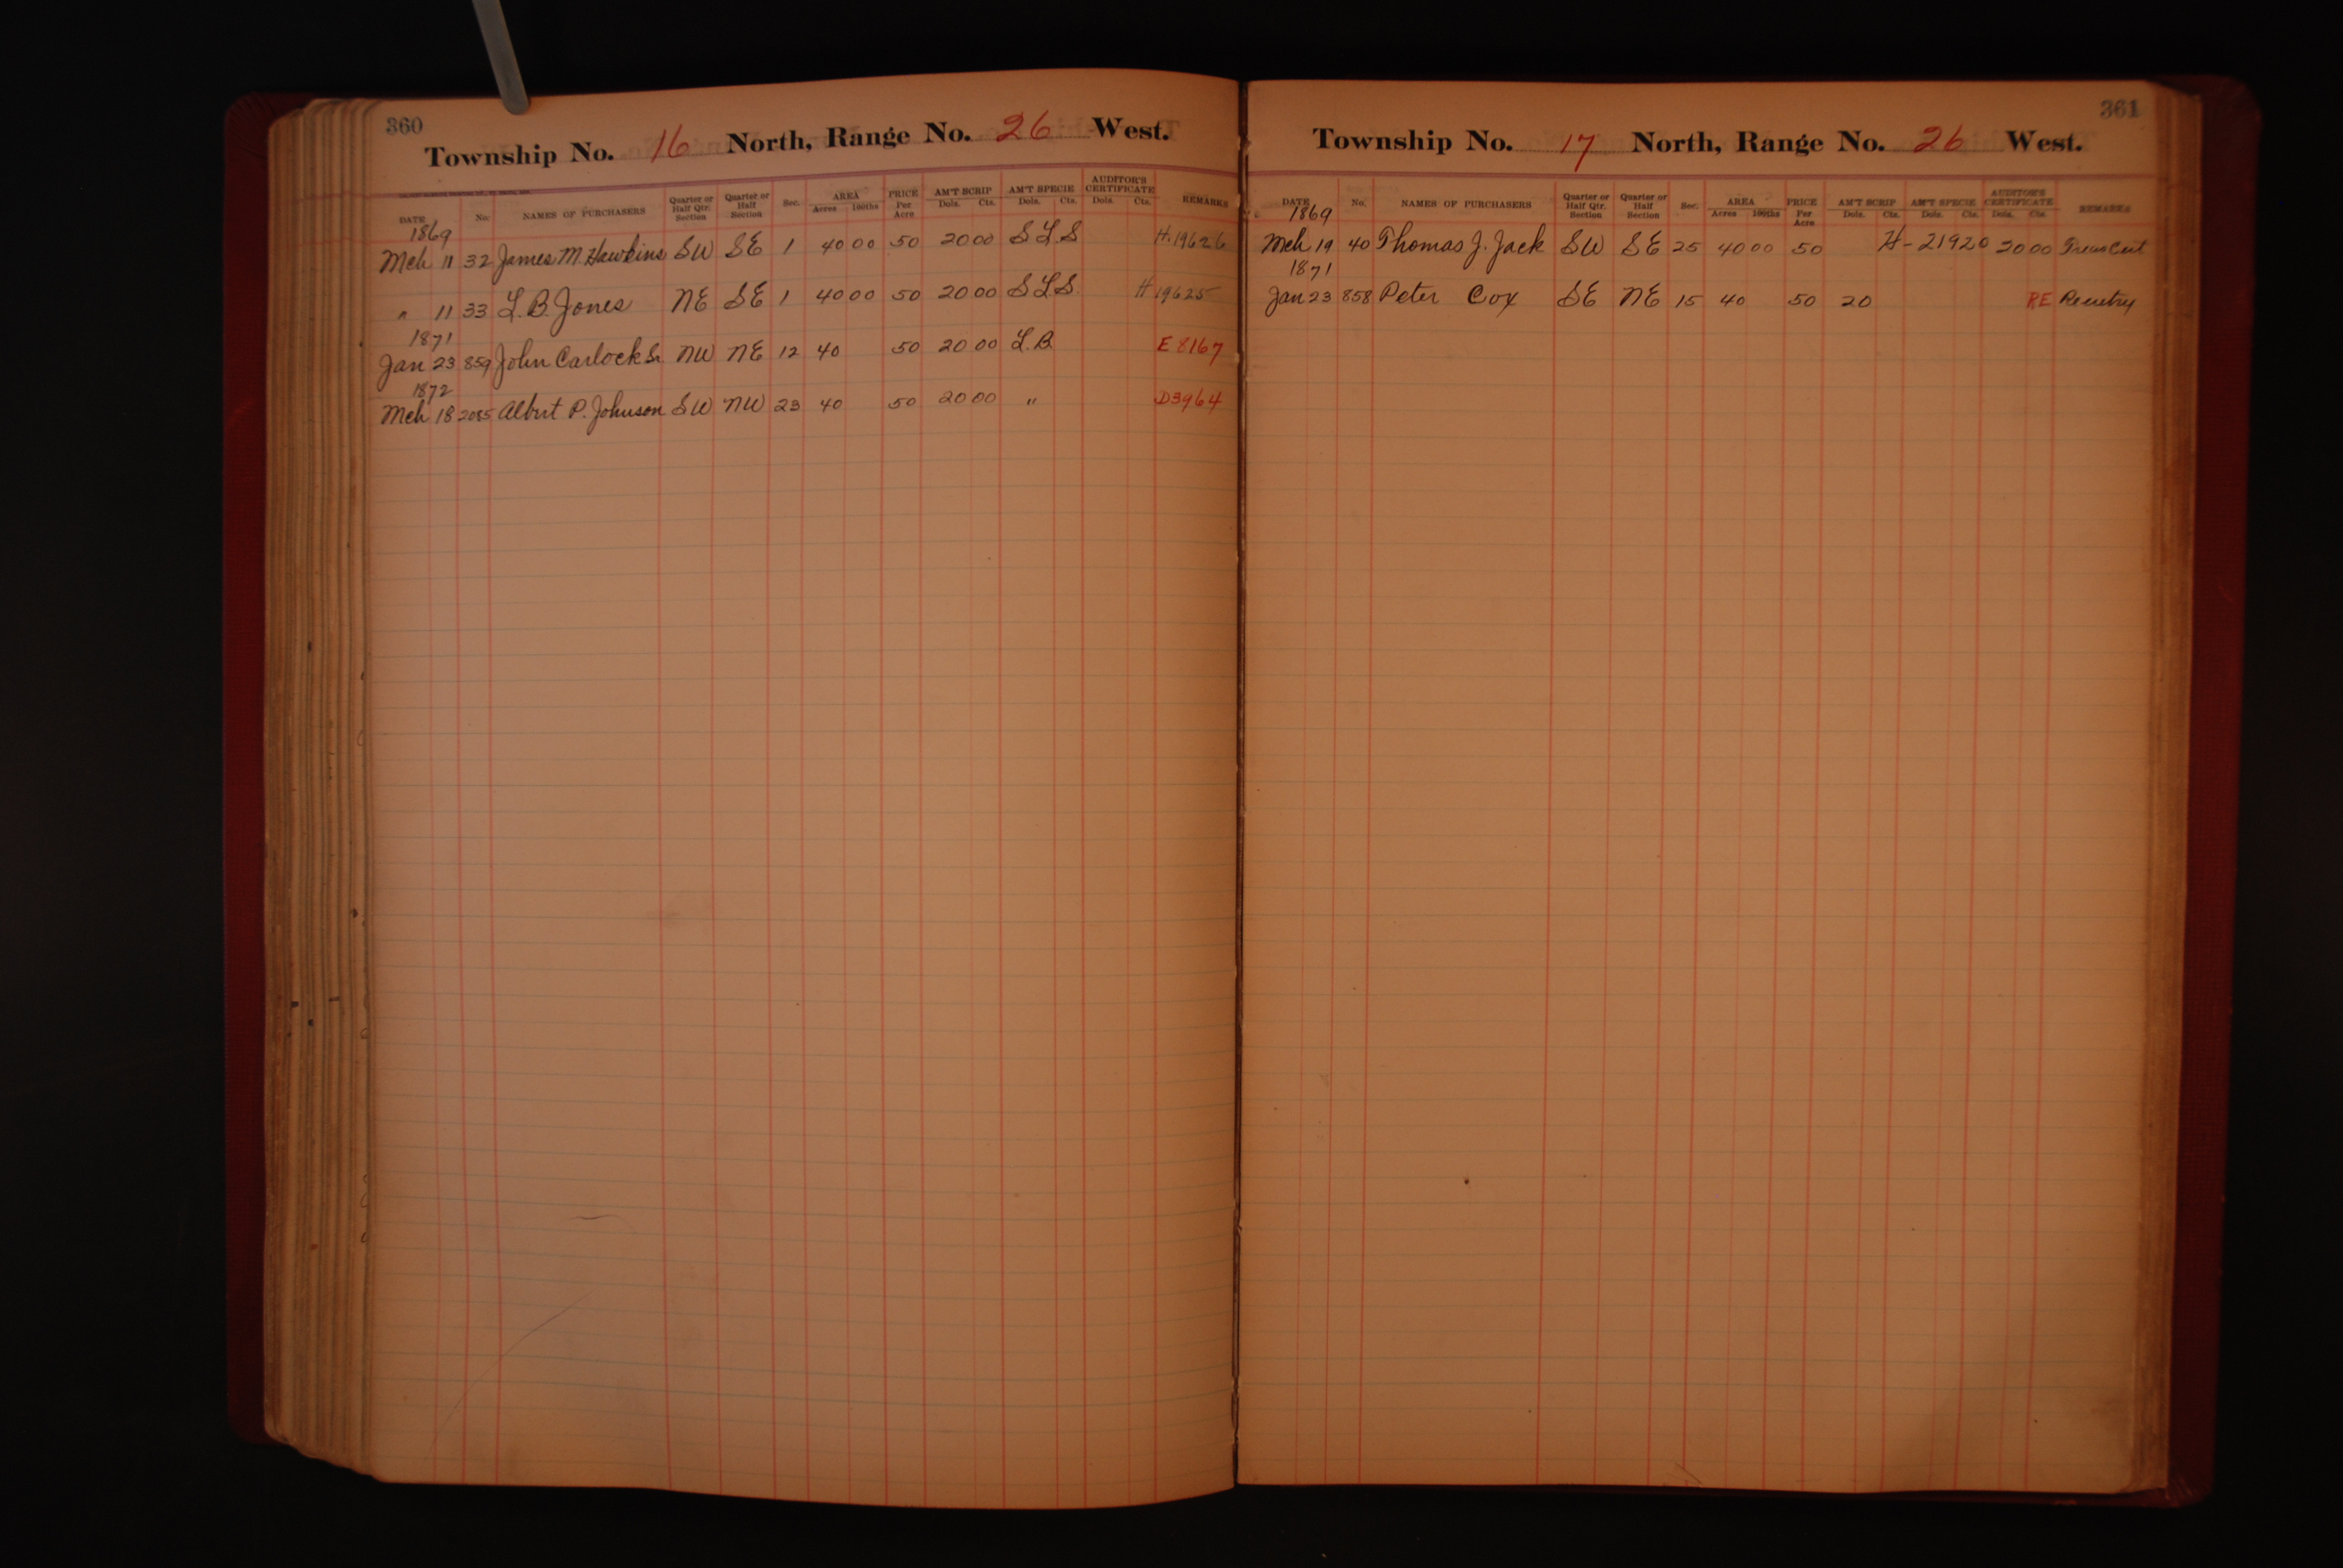 360
Township No. 16 North, Range No. 26 West.
DATE No. NAMES OF PURCHASERS Quarter or Half Qtr. Section Quarter or Half Section Sec. AREA Acres 100ths PRICE Per Acre AM'T SCRIP Dols. Cts. AM'T SPECIE Dols. Cts. AUDITOR'S CERTIFICATE Dols. Cts. REMARKS
1869
Mch 11 32 James M. Hawkins SW SE 1 40 00 50 20 00 S L S H.19626
" 11 33 L. B. Jones NE SE 1 40 00 50 20 00 S L S H 19625
1871
Jan 23 859 John Carlock Sr NW NE 12 40 50 20 00 L.B. E 8167
1872
Mch 18 2085 Albert P. Johnson SW NW 23 40 50 20 00 " D3964
361
Township No. 17 North, Range No. 26 West.
DATE No. NAMES OF PURCHASERS Quarter or Half Qtr. Section Quarter or Half Section Sec. AREA Acres 100ths PRICE Per Acre AM'T SCRIP Dols. Cts. AM'T SPECIE Dols. Cts. AUDITOR'S CERTIFICATE Dols. Cts. REMARKS
1869
Mch 19 40 Thomas J. Jack SW SE 25 40 00 50 H-21920 20 00 Treas Cert
1871
Jan 23 858 Peter Cox SE NE 15 40 50 20 RE Reentry